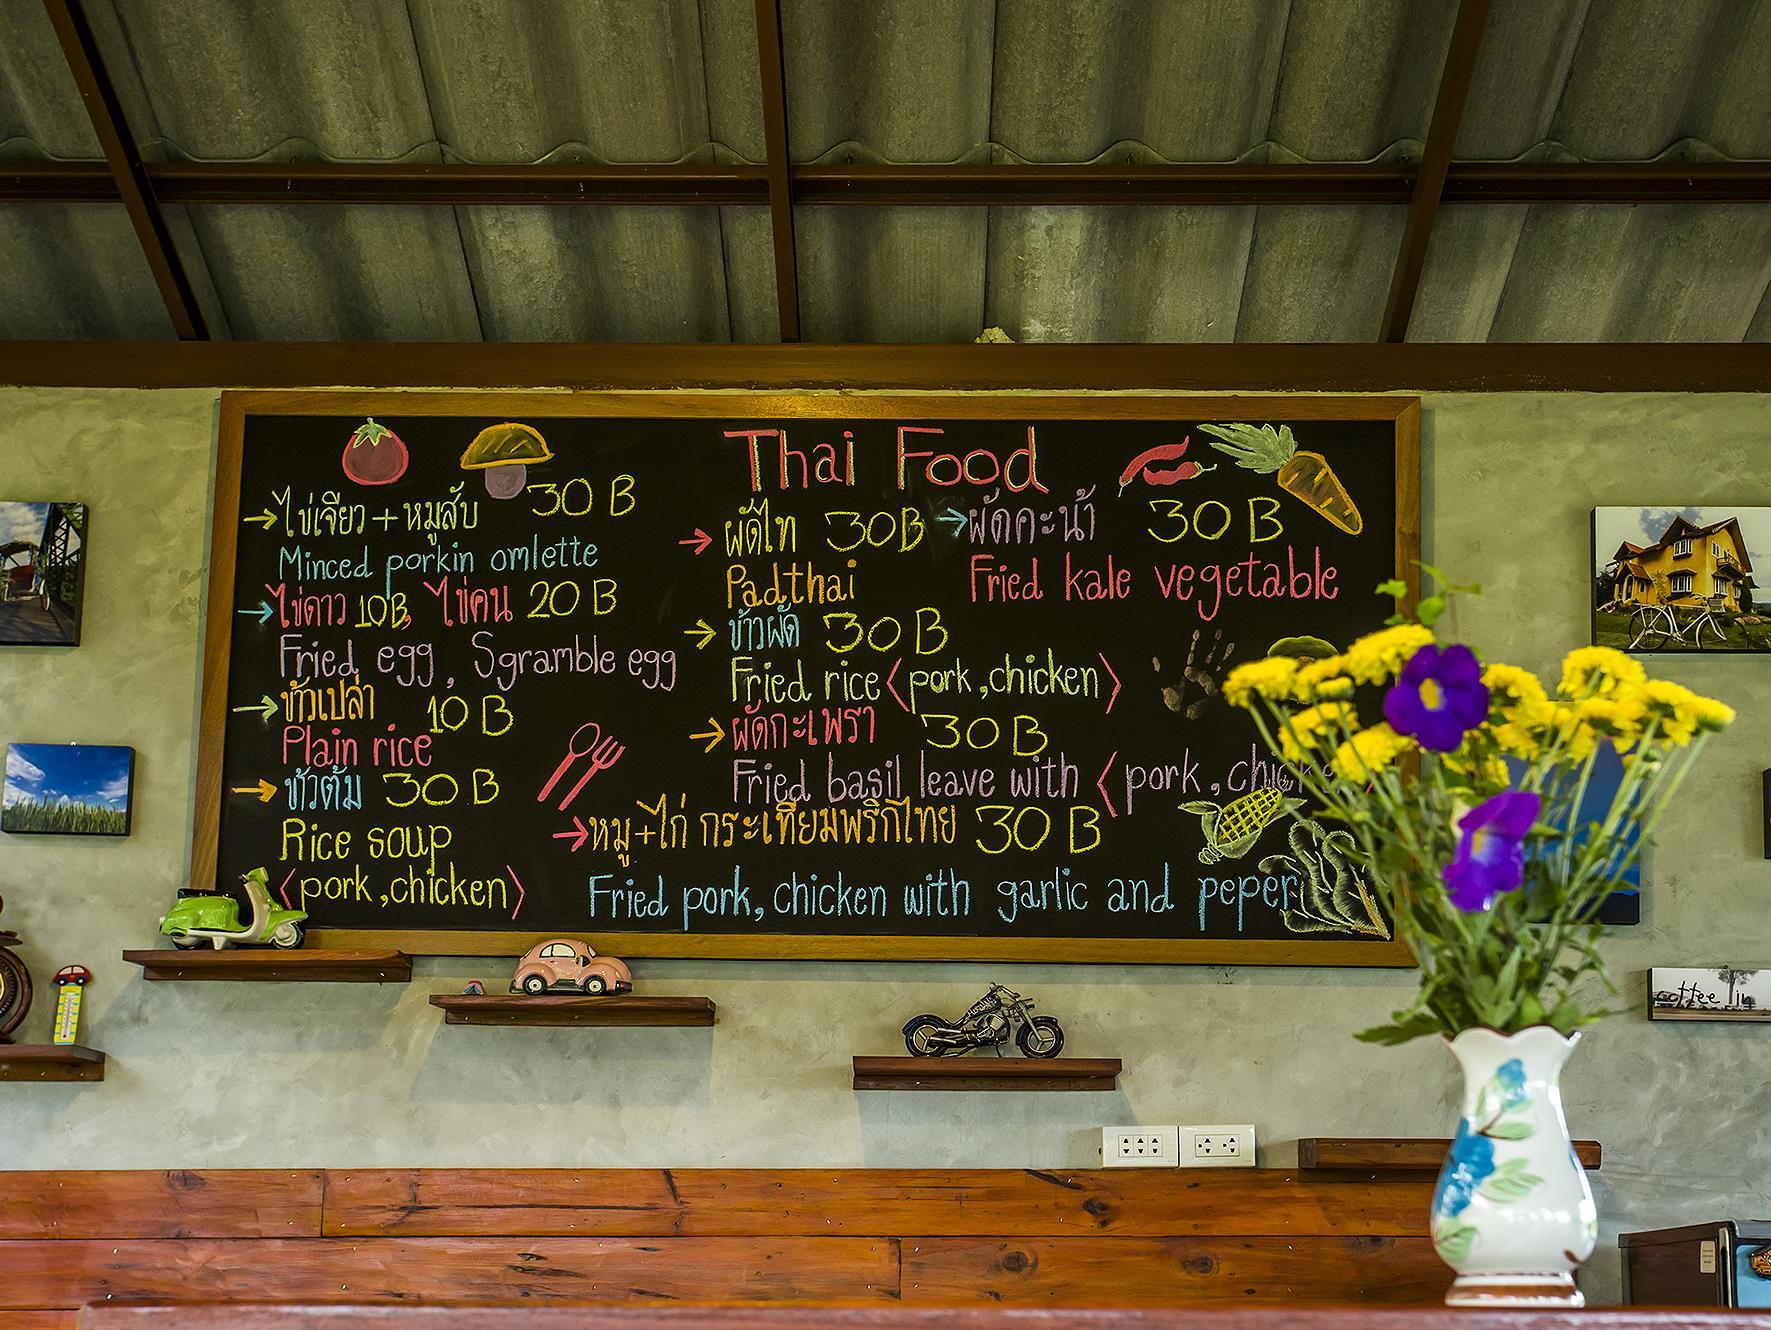 Thai Food
ไข่เจียว+หมูสับ 30 B
Minced porkin omlette
ไข่ดาว 10B, ไข่คน 20 B
Fried egg, Sgramble egg
ข้าวเปล่า 10 B
Plain rice
ข้าวต้ม 30 B
Rice soup
<pork,chicken>
ผัดไท 30B
Padthai
ข้าวผัด 30 B
Fried rice <pork,chicken>
ผัดกะเพรา 30 B
Fried basil leave with <pork,
หมู+ไก่ กระเทียมพริกไทย 30 B
Fried pork, chicken with garlic and peper
ผัดคะน้า 30 B
Fried kale vegetable